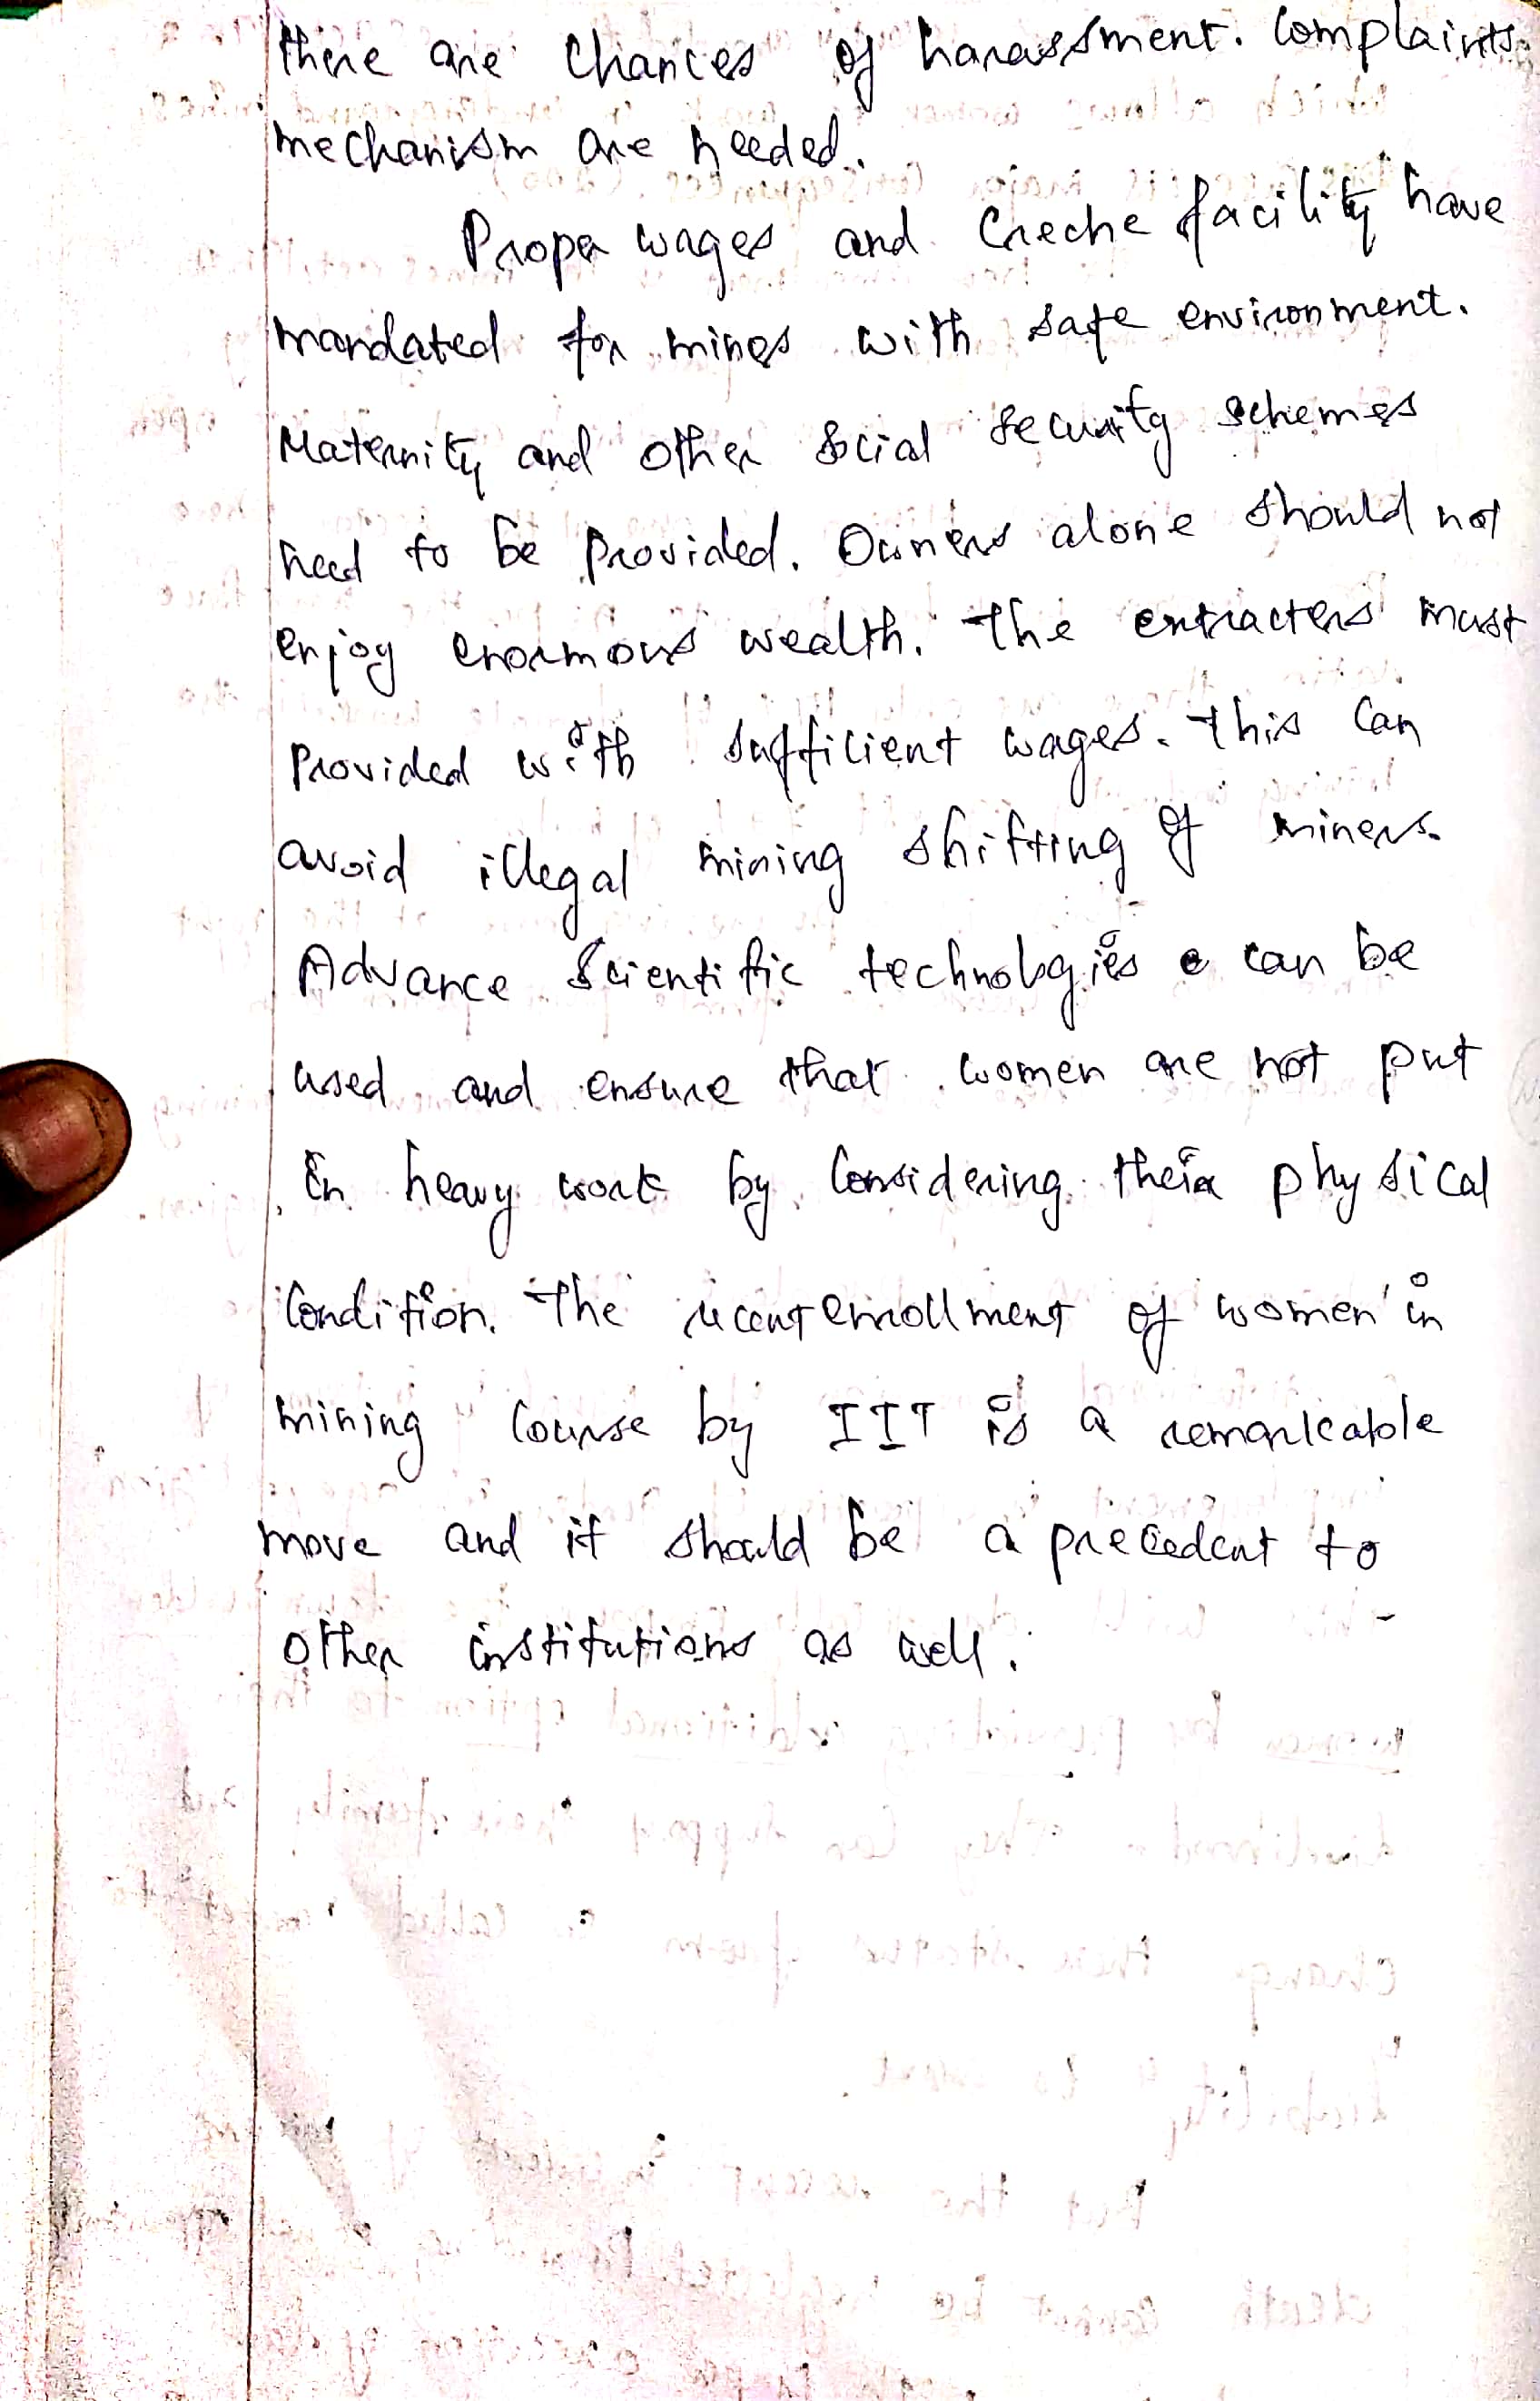 there are chances of harassment. Complaints
mechanism are needed.
Proper wages and Creche facility have
mandated for mines with safe environment.
Maternity and other social security schemes
need to be provided. Owners alone should not
enjoy enormous wealth. The extracters must
provided with sufficient wages. This can
avoid illegal mining shifting of miners.
Advance scientific technologies can be
used and ensure that women are not put
in heavy work by considering their physical
condition. The recent enrollment of women in
mining course by IIT is a remarkable
move and it should be a precedent to
other institutions as well.